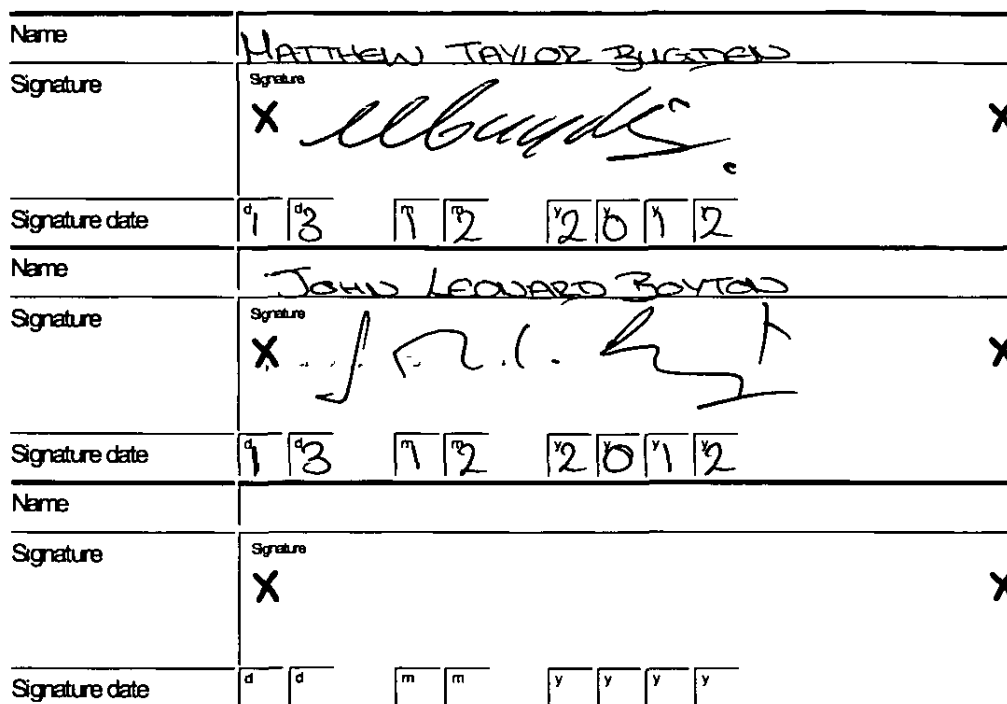 Name MATTHEW TAYLOR BUGDEN
Signature Signature
X X
Signature date d1 d3 m1 m2 y2 y0 y1 y2
Name JOHN LEONARD BOYTON
Signature Signature
X X
Signature date d1 d3 m1 m2 y2 y0 y1 y2
Name
Signature Signature
X X
Signature date d d m m y y y y